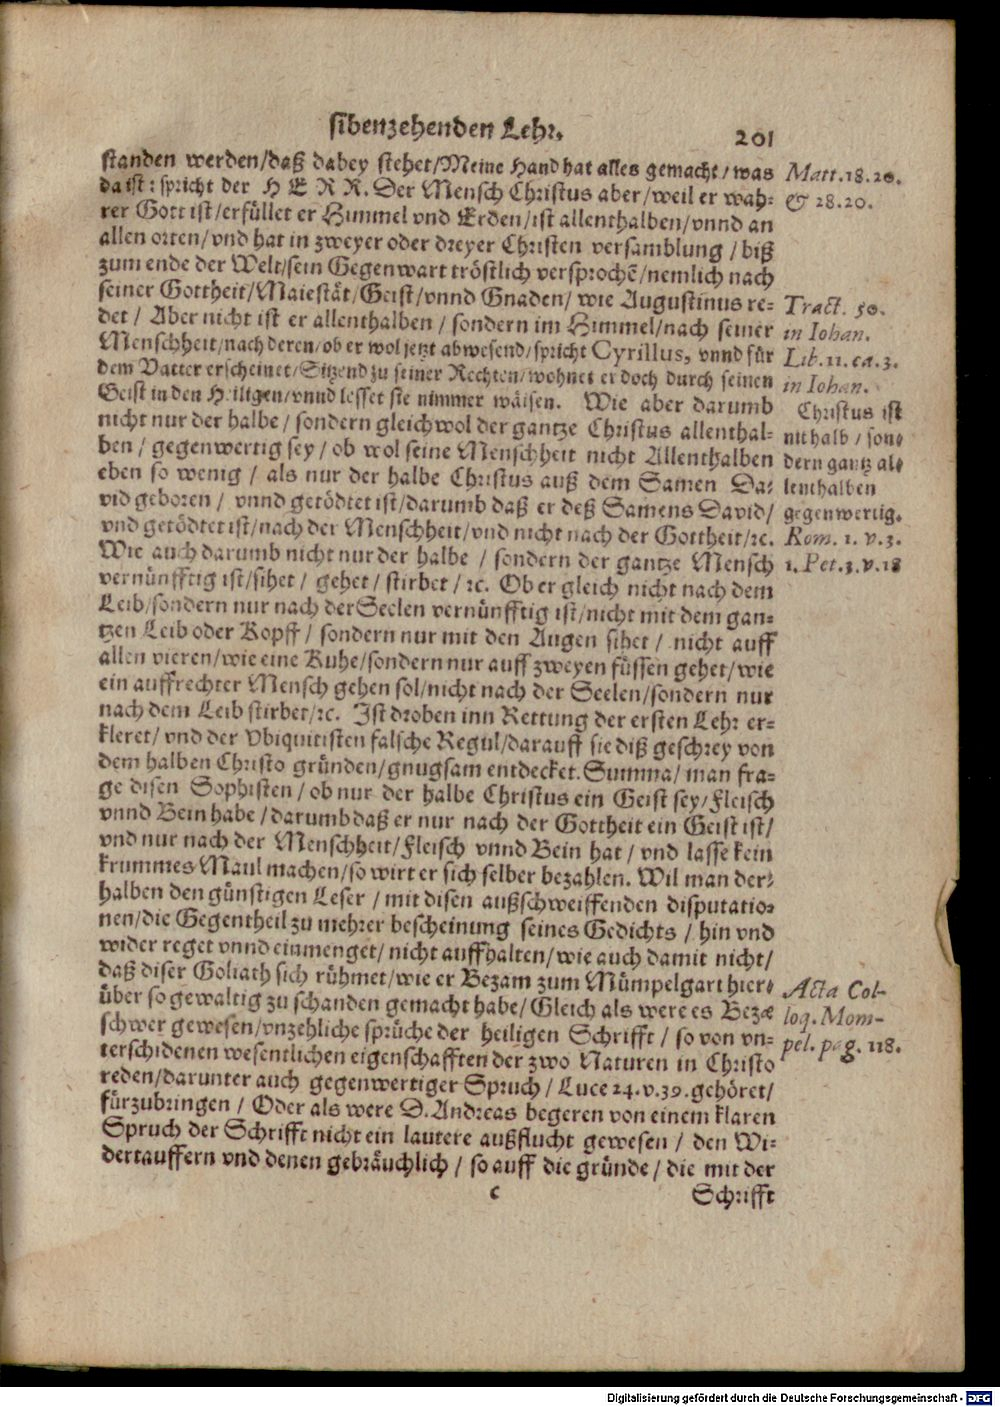 sibenzehenden Lehr.
201
standen werden/daß dabey stehet/Meine Hand hat alles gemacht/was
da ist: spricht der HERR. Der Mensch Christus aber/weil er wah-
rer Gott ist/erfüllet er Himmel vnd Erden/ist allenthalben/vnnd an
allen orten/vnd hat in zweyer oder dreyer Christen versamblung/biß
zum ende der Welt/sein Gegenwart tröstlich versprochẽ/nemlich nach
seiner Gottheit/Maiestät/Geist/vnnd Gnaden/wie Augustinus re-
det/Aber nicht ist er allenthalben/sondern im Himmel/nach seiner
Menschheit/nach deren/ob er wol jetzt abwesend/spricht Cyrillus, vnnd für
dem Vatter erscheinet/Sitzend zu seiner Rechten/wohnet er doch durch seinen
Geist in den Heiligen/vnnd lesset sie nimmer wäisen. Wie aber darumb
nicht nur der halbe/sondern gleichwol der gantze Christus allenthal-
ben/gegenwertig sey/ob wol seine Menschheit nicht Allenthalben
eben so wenig/als nur der halbe Christus auß dem Samen Da-
vid geboren/vnnd getödtet ist/darumb daß er deß Samens David/
vnd getödtet ist/nach der Menschheit/vnd nicht nach der Gottheit/ꝛc.
Wie auch darumb nicht nur der halbe/sondern der gantze Mensch
vernünfftig ist/sihet/gehet/stirbet/ꝛc. Ob er gleich nicht nach dem
Leib/sondern nur nach der Seelen vernünfftig ist/nicht mit dem gan-
tzen Leib oder Kopff/sondern nur mit den Augen sihet/nicht auff
allen vieren/wie eine Kuhe/sondern nur auff zweyen füssen gehet/wie
ein auffrechter Mensch gehen sol/nicht nach der Seelen/sondern nur
nach dem Leib stirbet/ꝛc. Ist droben inn Rettung der ersten Lehr er-
kleret/vnd der Vbiquitisten falsche Regul/darauff sie diß geschrey von
dem halben Christo gründen/gnugsam entdecket. Summa/man fra-
ge disen Sophisten/ob nur der halbe Christus ein Geist sey/Fleisch
vnnd Bein habe/darumb daß er nur nach der Gottheit ein Geist ist/
vnd nur nach der Menschheit/Fleisch vnnd Bein hat/vnd lasse kein
krummes Maul machen/so wirt er sich selber bezahlen. Wil man der-
halben den günstigen Leser/mit disen außschweiffenden disputatio-
nen/die Gegentheil zu mehrer bescheinung seines Gedichts/hin vnd
wider reget vnnd einmenget/nicht auffhalten/wie auch damit nicht/
daß diser Goliath sich rühmet/wie er Bezam zum Mümpelgart hier-
über so gewaltig zu schanden gemacht habe/Gleich als were es Bezæ
schwer gewesen/vnzehliche sprüche der heiligen Schrifft/so von vn-
terschidenen wesentlichen eigenschafften der zwo Naturen in Christo
reden/darunter auch gegenwertiger Spruch/Luce 24. v.39. gehöret/
fürzubringen/Oder als were D. Andreas begeren von einem klaren
Spruch der Schrifft nicht ein lautere außflucht gewesen/den Wi-
dertauffern vnd denen gebräuchlich/so auff die gründe/die mit der
c
Schrifft
Matt. 18. 20.
& 28. 20.
Tract. 50.
in Iohan.
Lib. 11. ca. 3.
in Iohan.
Christus ist
nit halb/son-
dern gantz al-
lenthalben
gegenwertig.
Rom. 1. v. 3.
1. Pet. 3. v. 18
Acta Col-
loq. Mom-
pel. pag. 118.
Digitalisierung gefördert durch die Deutsche Forschungsgemeinschaft - DFG